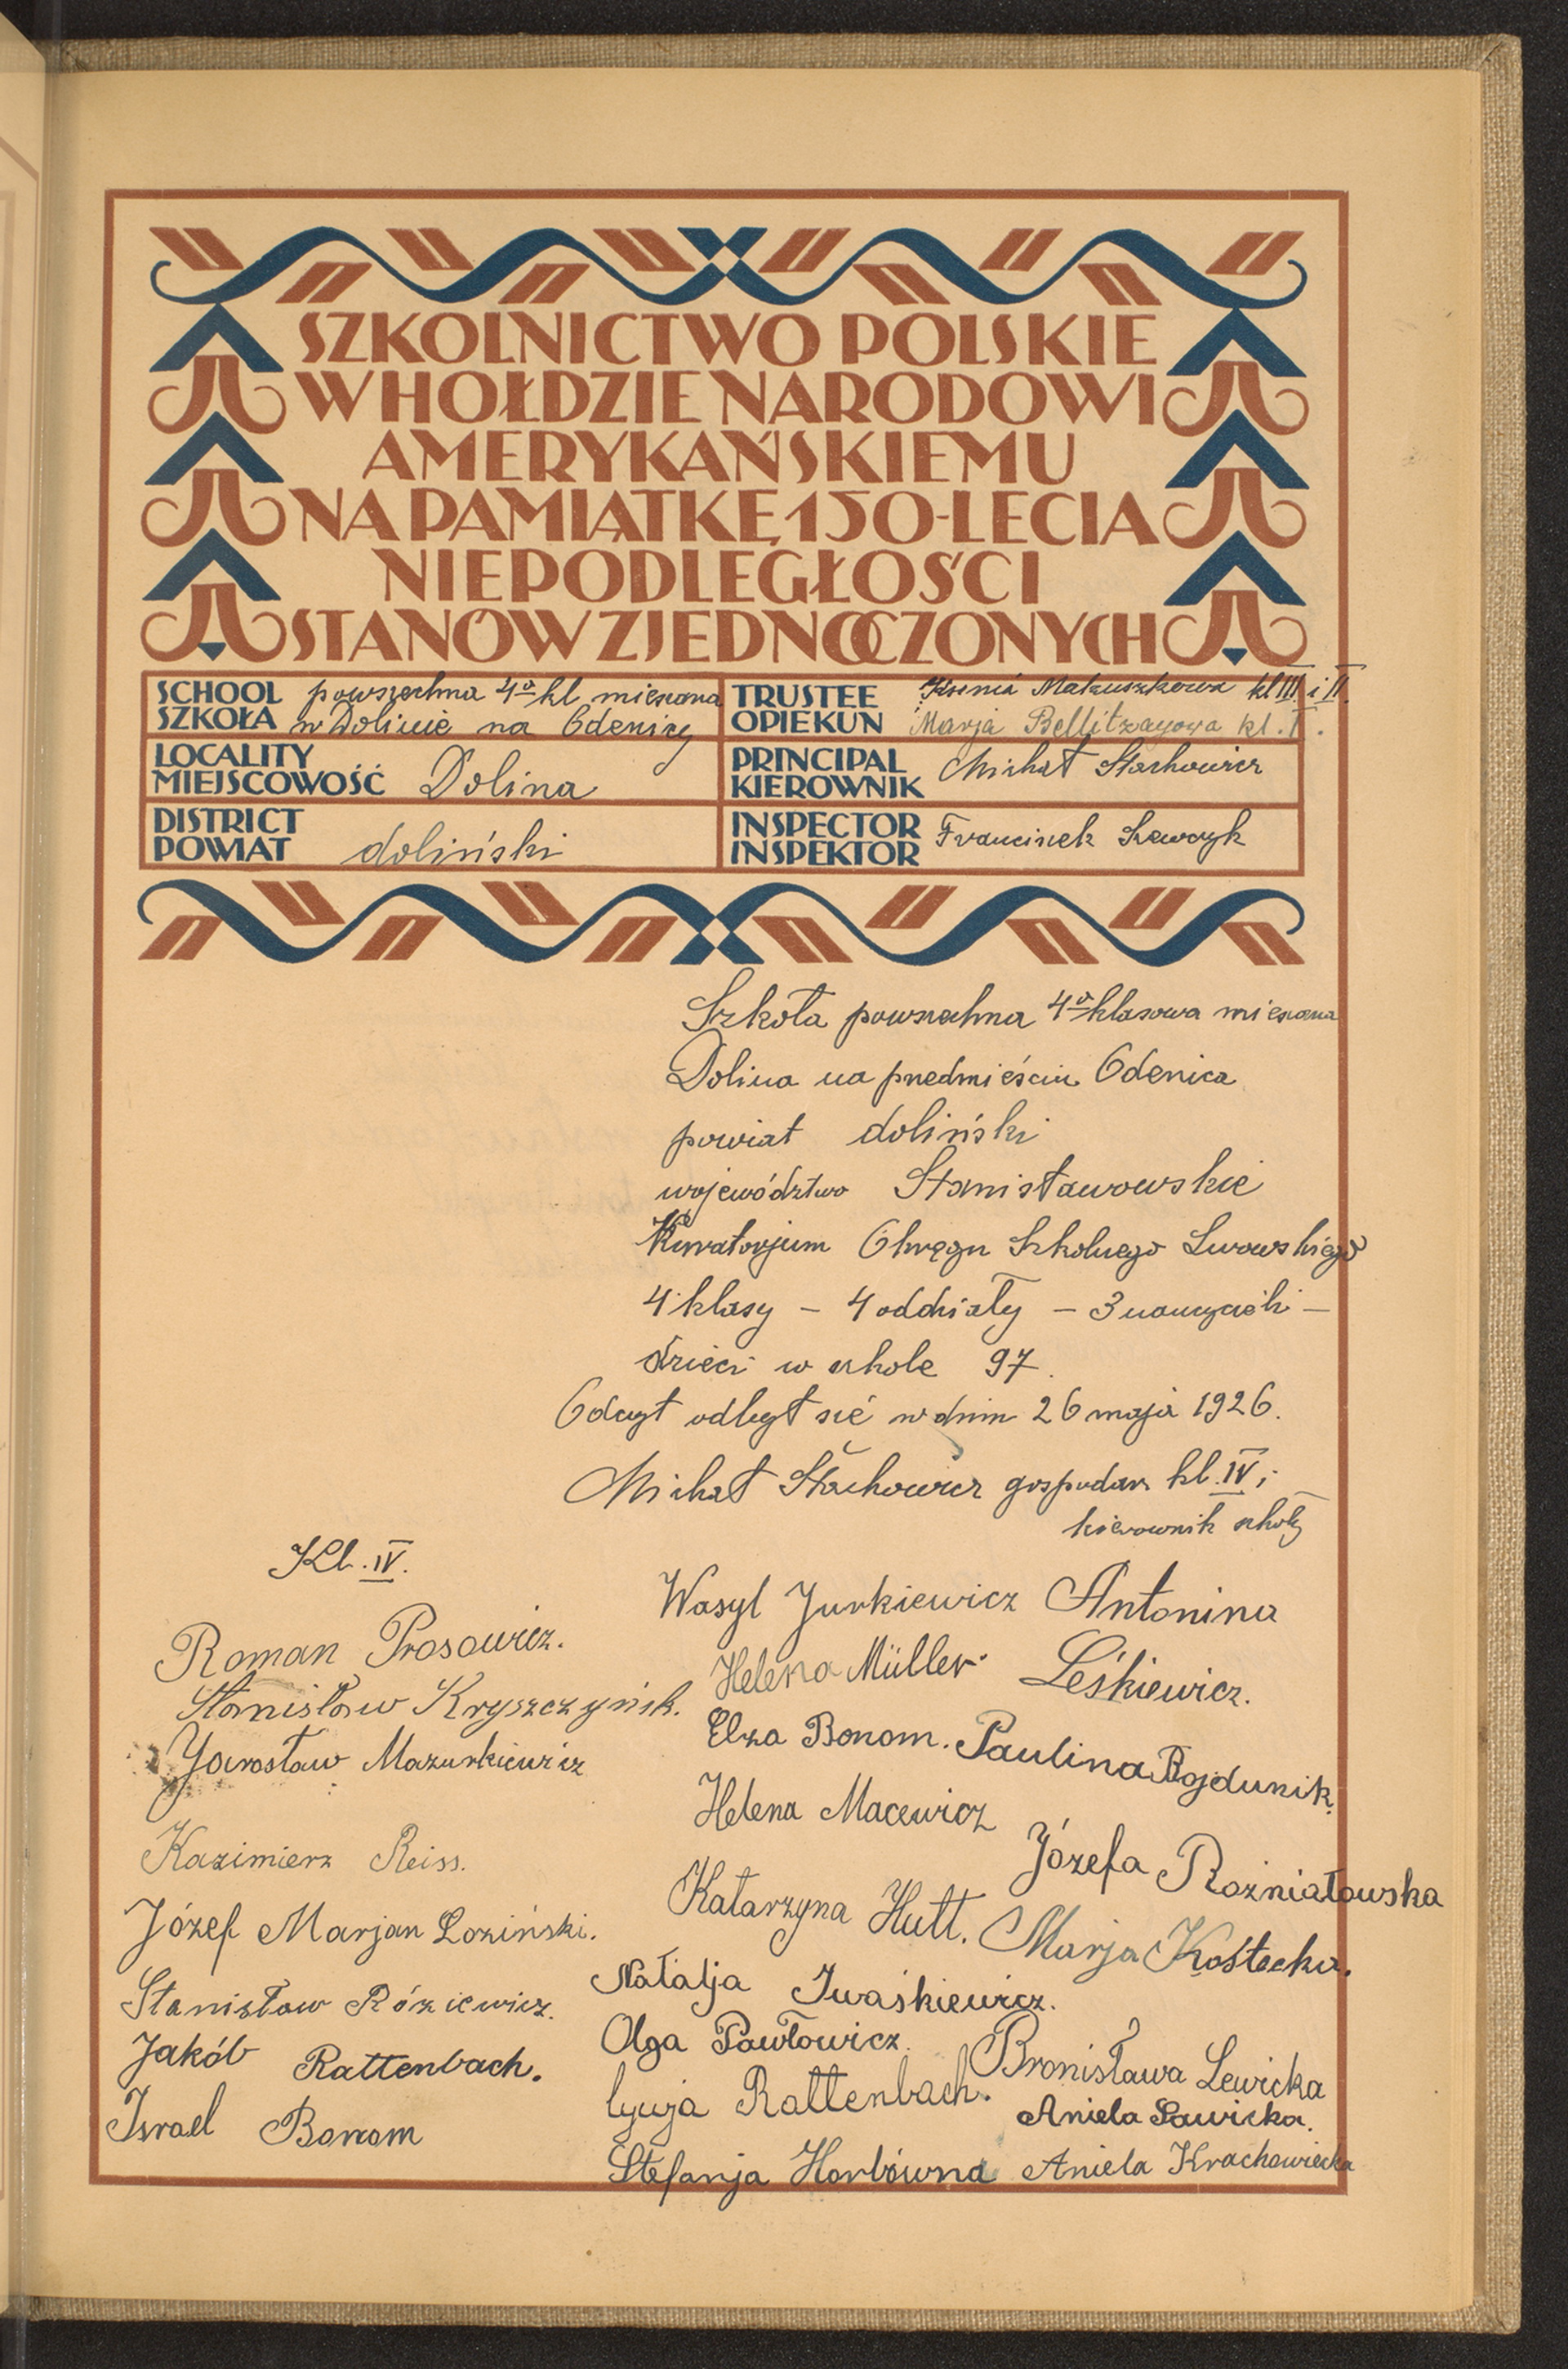 SZKOLNICTWO POLSKIE
W HOŁDZIE NARODOWI
AMERYKAŃSKIEMU
NA PAMIĄTKĘ 150-LECIA
NIEPODLEGŁOŚCI
STANÓW ZJEDNOCZONYCH
SCHOOL
SZKOŁA
powszechna 4o kl mieszana
w Dolinie na Odenicy
TRUSTEE
OPIEKUN
Ksenia Matuszkowa kl III i II.
Marja kl. I.
LOCALITY
MIEJSCOWOŚĆ
Dolina
PRINCIPAL
KIEROWNIK
Michał Stachowicz
DISTRICT
POWIAT
doliński
INSPECTOR
INSPEKTOR
Franciszek Szewczyk
Szkoła powszechna 4o klasowa mieszana
Dolina na przedmieściu Odenica
powiat doliński
województwo Stanisławowskie
Kuratorjum Okręgu Szkolnego Lwowskiego
4 klasy – 4 oddziały – 3 nauczycieli –
dzieci w szkole 97.
Odczyt odbył się w dniu 26 maja 1926.
Michał Stachowicz gospodarz kl. IV i
kierownik szkoły
Kl. IV.
Roman Prosowicz.
Stanisław Kryszczyńsk.
Jarosław Mazurkiewicz
Kazimierz Reiss.
Józef Marjan Loziński.
Stanisław Róziewicz.
Jakób Rattenbach.
Israel Bonom
Wasyl Jurkiewicz
Helena Müller
Elza Bonom.
Helena Macewicz
Katarzyna Hutt.
Natalja Iwaśkiewicz.
Olga Pawłowicz.
Rattenbach.
Stefanja Horbówna
Antonina
Leśkiewicz.
Paulina Bojdunik.
Józefa Rożniatowska
Marja Kostecka.
Bronisława Lewicka
Aniela Sawicka.
Aniela Krachowiecka